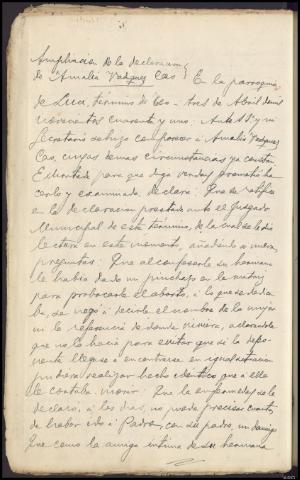 Ampliacion de la declaracion
de Amalia Vazquez Cao } En la parroquia
de Lua, término de Teo - tres de Abril de mil
novecientos cuarenta y uno. Ante S.S. y mi
Secretario se hizo comparecer a Amalia Vazquez
Cao, cuyas demas circunstancias ya constan
Exhortada para que diga verdad, prometió ha-
cerlo y examinada, declara: Que se ratifica
en la declaracion prestada ante el Juzgado
Municipal de este término, de la cual se le dio
lectura en este momento, añadiendo a nuevas
preguntas: Que al confesarle su hermana
le habia dado un pinchazo en la matriz
para probocarle el aborto, a lo que se dedica-
ba, se negó a decirle el nombre de la mujer
ni la referencia de donde viviera, aclarandole
que no lo hacia para evitar que si la depo-
nente llegase a encontrarse en igual situacion
pudiera realizar hecho identico que a ella
le costaba morir. Que la enfermedad de la
declaro, a los dias, no puede precisar cuantos,
de haber ido a Padron, con su padre, un domingo
Que como la amiga intima de su hermana